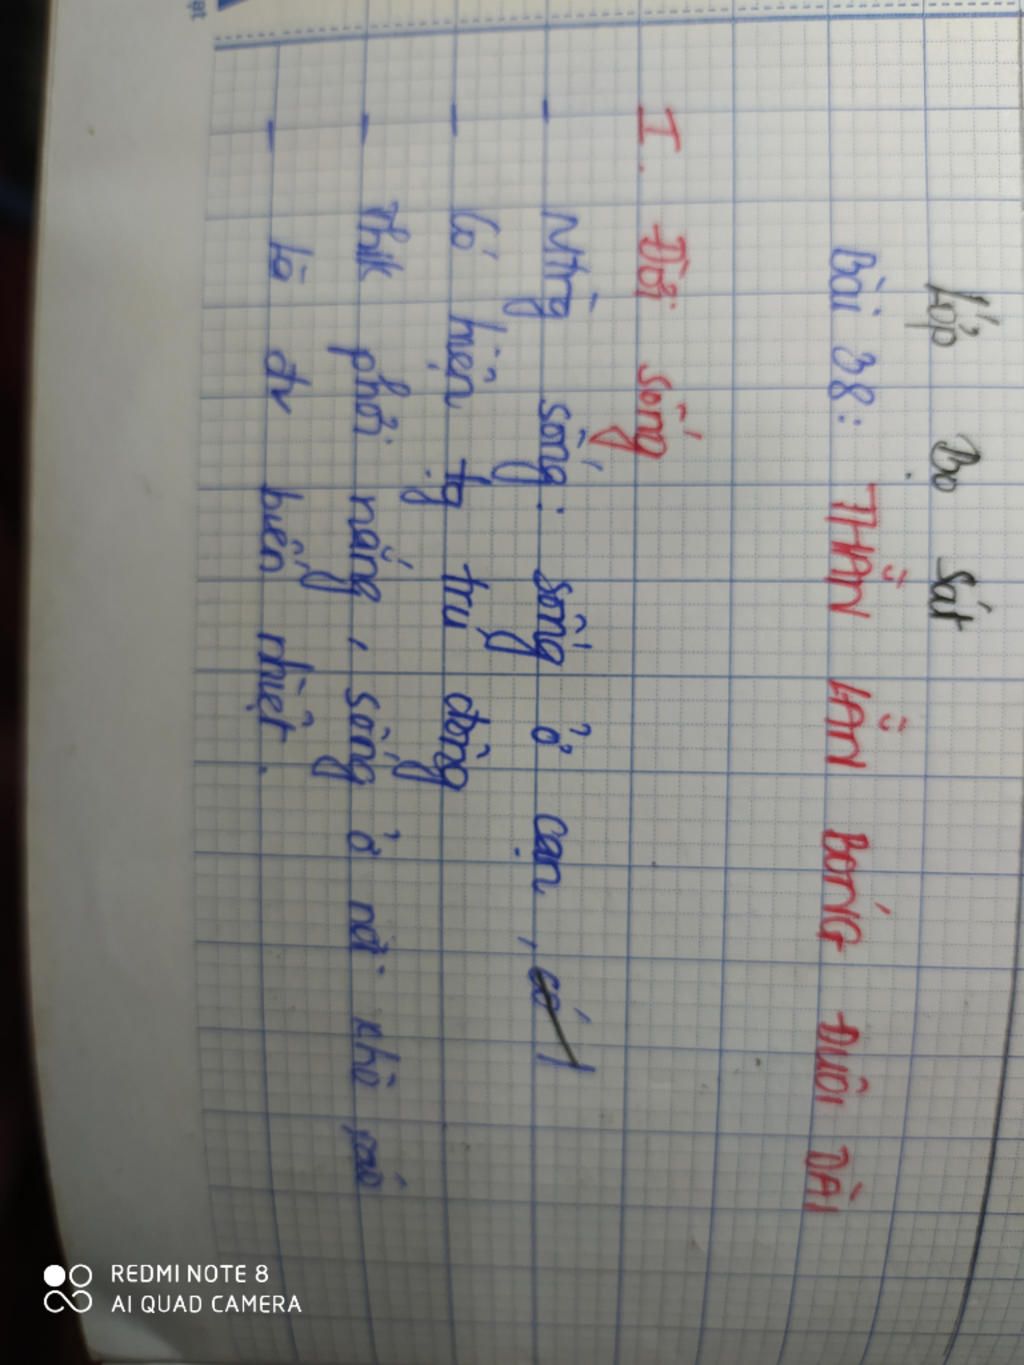 Lớp Bò sát
Bài 38: THẰN LẰN BÓNG ĐUÔI DÀI
I. Đời sống
- Mtrg sống: sống ở cạn, có
- Có hiện tg trú đông
- Thik phơi nắng, sống ở nơi khô ráo
- Là đv biến nhiệt.
REDMI NOTE 8
AI QUAD CAMERA